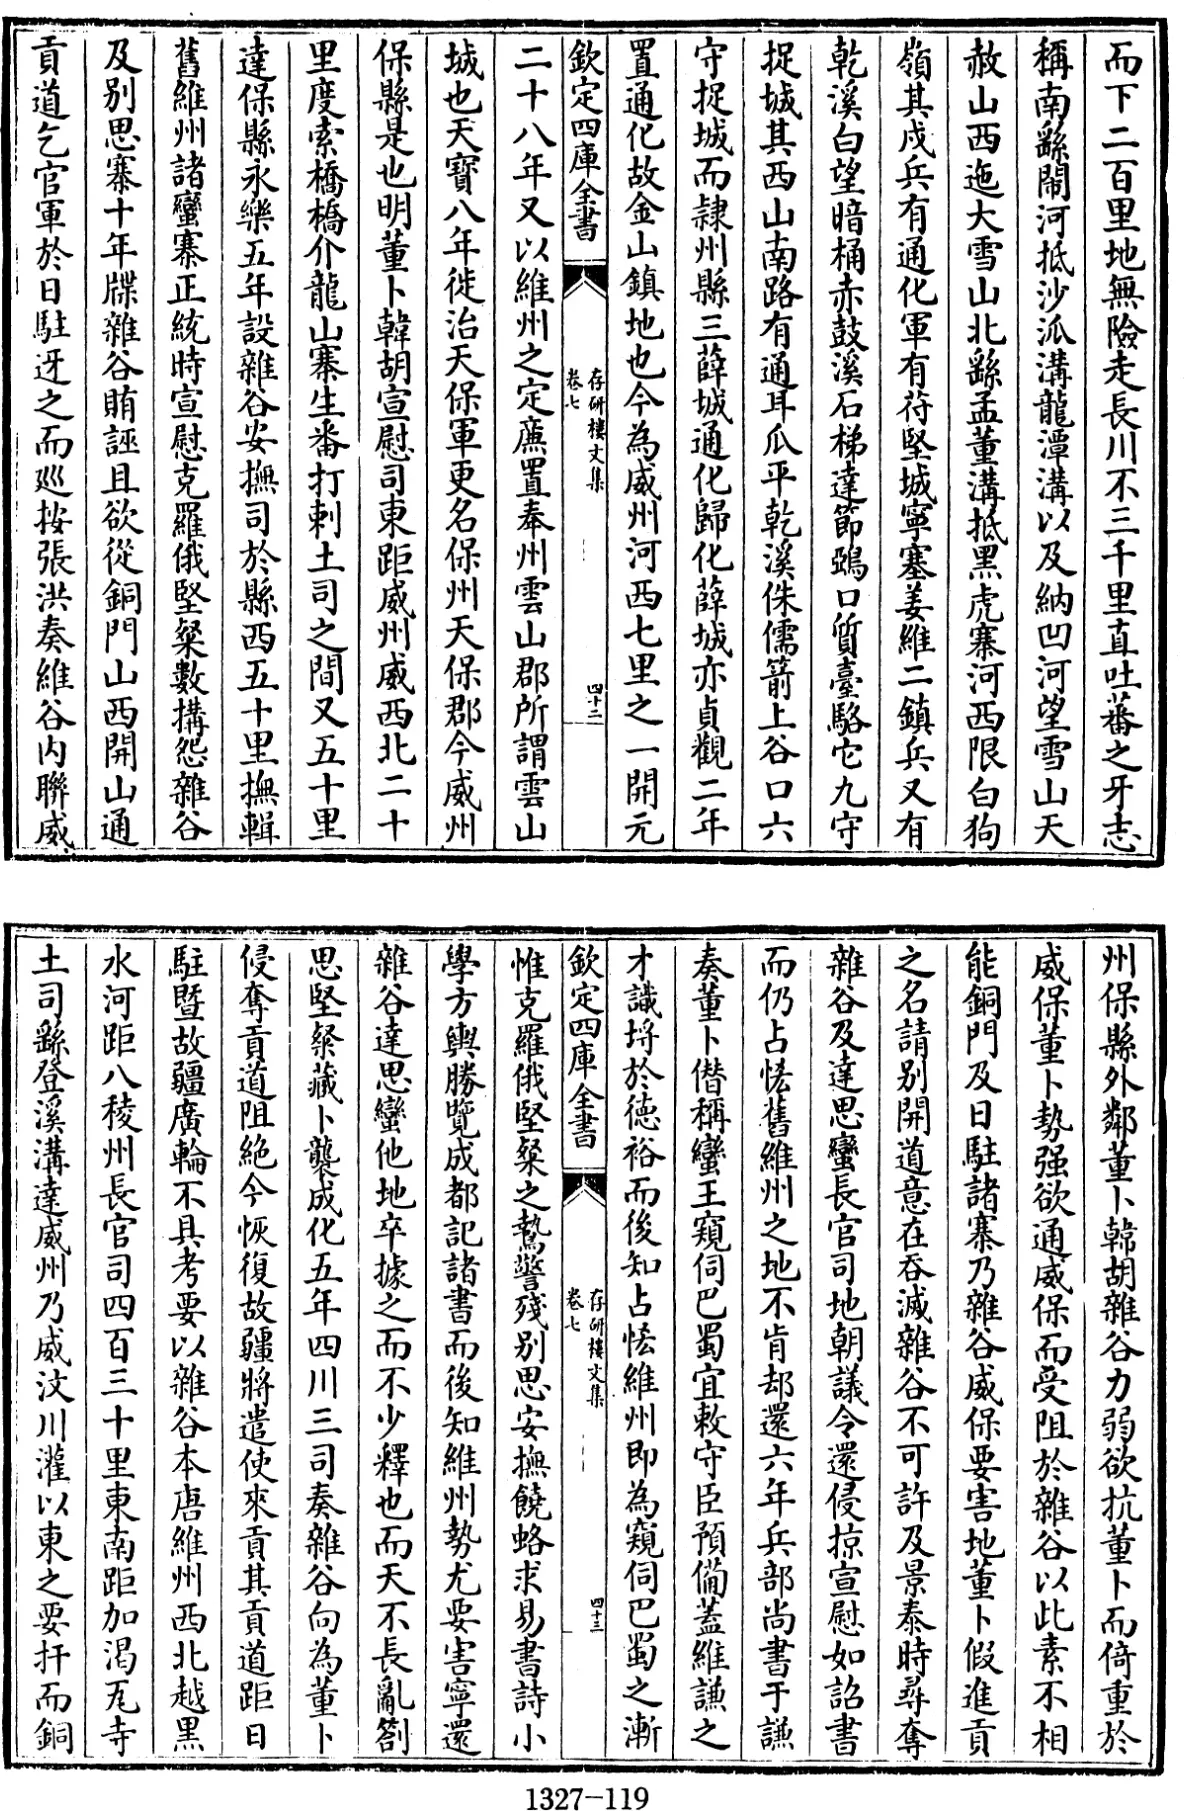 而下二百里地無險走長川不三千里直吐蕃之牙志
稱南繇閙河抵沙派溝龍潭溝以及納凹河望雪山天
赦山西迤大雪山北繇孟董溝抵黑虎寨河西限白狗
嶺其戍兵有通化軍有苻堅城寧塞姜維二鎮兵又有
乾溪白望暗桶赤鼓溪石梯達節鵶口質臺駱它九守
捉城其西山南路有通耳瓜平乾溪侏儒箭上谷口六
守捉城而隷州縣三薛城通化歸化薛城亦貞觀二年
置通化故金山鎮地也今為威州河西七里之一開元
欽定四庫全書
存研樓文集
卷七
四十二
二十八年又以維州之定廉置奉州雲山郡所謂雲山
城也天寶八年徙治天保軍更名保州天保郡今威州
保縣是也明董卜韓胡宣慰司東距威州威西北二十
里度索橋橋介龍山寨生番打剌土司之間又五十里
達保縣永樂五年設雜谷安撫司於縣西五十里撫輯
舊維州諸蠻寨正統時宣慰克羅俄堅粲數搆怨雜谷
及别思寨十年牒雜谷賄誣且欲從銅門山西開山通
貢道乞官軍於日駐迓之而廵按張洪奏維谷内聯威
州保縣外鄰董卜韓胡雜谷力弱欲抗董卜而倚重於
威保董卜勢强欲通威保而受阻於雜谷以此素不相
能銅門及日駐諸寨乃雜谷威保要害地董卜假進貢
之名請别開道意在吞滅雜谷不可許及景泰時尋奪
雜谷及達思蠻長官司地朝議令還侵掠宣慰如詔書
而仍占恡舊維州之地不肯却還六年兵部尚書于謙
奏董卜僭稱蠻王窺伺巴蜀宜敕守臣預備葢維謙之
才識埒於徳裕而後知占恡維州即為窺伺巴蜀之漸
欽定四庫全書
存研樓文集
卷七
四十三
惟克羅俄堅粲之驁謷殘别思安撫饒蛒求易書詩小
學方輿勝覽成都記諸書而後知維州勢尤要害寧還
雜谷達思蠻他地卒據之而不少釋也而天不長亂劄
思堅粲藏卜襲成化五年四川三司奏雜谷向為董卜
侵奪貢道阻絶今恢復故疆將遣使來貢其貢道距日
駐暨故疆廣輪不具考要以雜谷本唐維州西北越黑
水河距八稜州長官司四百三十里東南距加渴㐌寺
土司繇登溪溝達威州乃威汶川灌以東之要扞而銅
1327-119